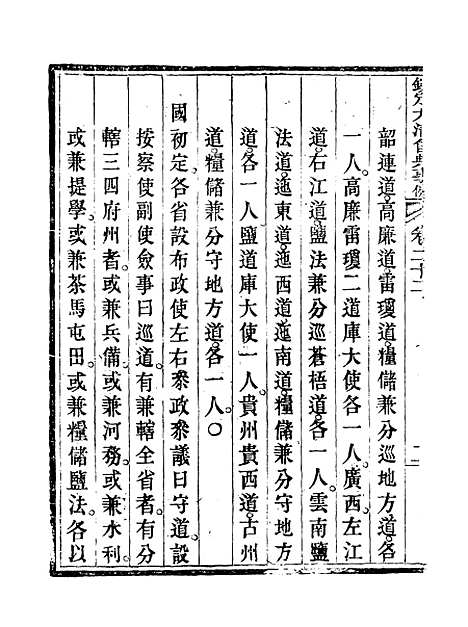 欽定大清會典事例 卷二十二
韶連道高廉道雷瓊道糧儲兼分巡地方道各
一人高廉雷瓊二道庫大使各一人廣西左江
道右江道鹽法兼分巡蒼梧道各一人雲南鹽
法道迤東道迤西道迤南道糧儲兼分守地方
道各一人鹽道庫大使一人貴州貴西道古州
道糧儲兼分守地方道各一人○
國初定各省設布政使左右叅政叅議曰守道設
按察使副使僉事曰巡道有兼轄全省者有分
轄三四府州者或兼兵備或兼河務或兼水利
或兼提學或兼茶馬屯田或兼糧儲鹽法各以